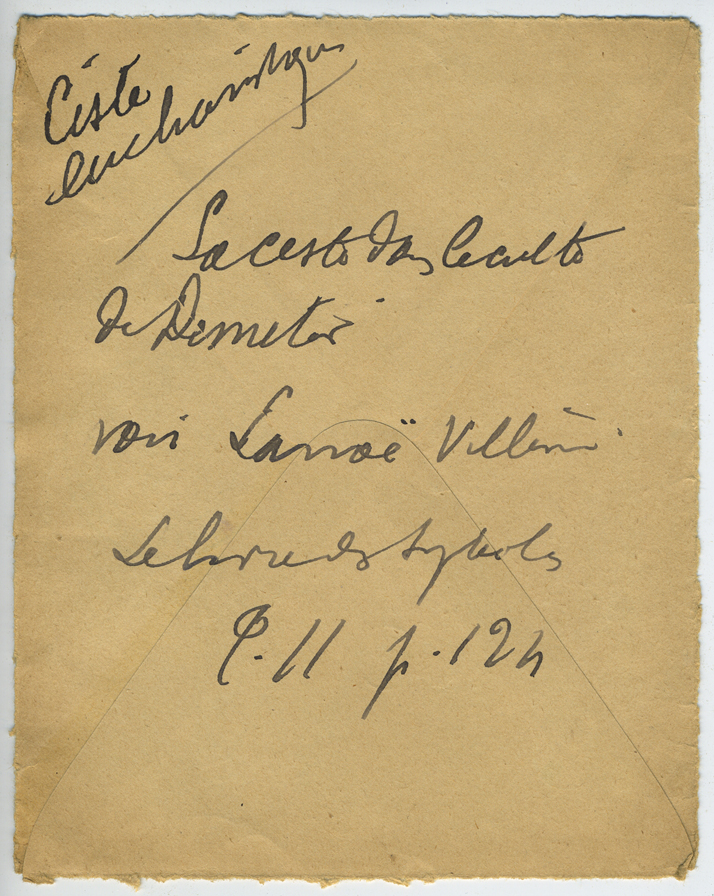 Ciste
eucharistique
La ceste dans le culte
de Demeter
voir Lanoë Villène
Le livre des symboles
T. II p. 124